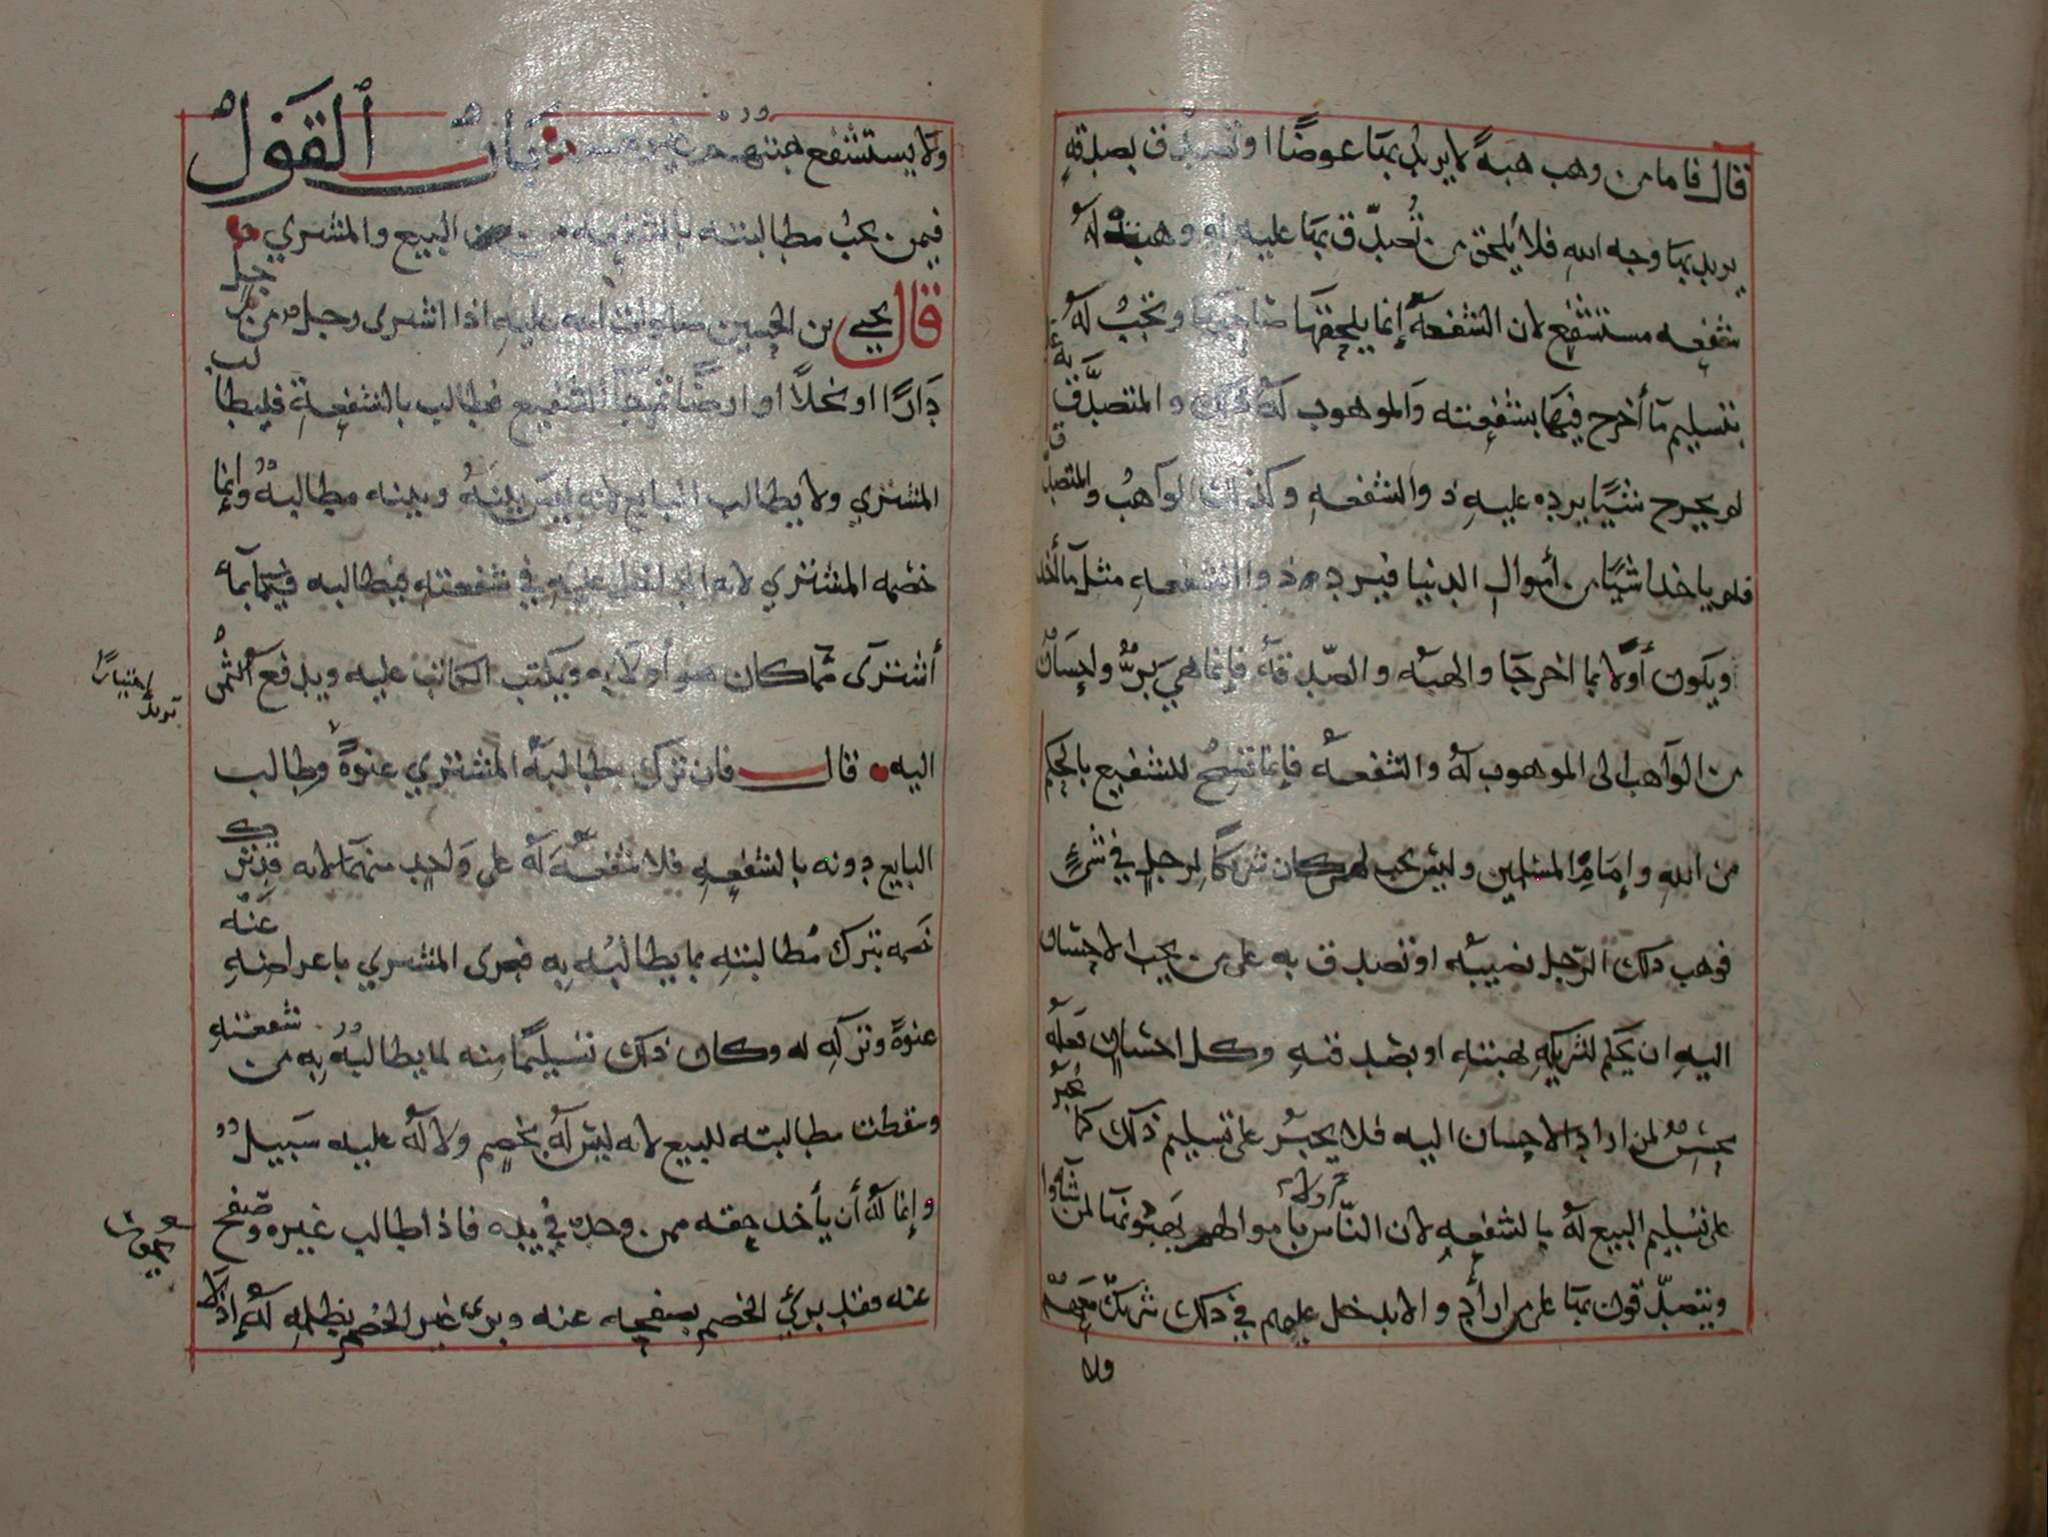 قال فاما من وهب هبةً لا يريد بها عوضًا او تصدق بصدقةٍ
يريد بها وجه الله فلا يلحق من تُصدّق بها عليه او وهبت له
شفعه مستشفع لان الشفعه إنما يلحقها صاحبها وتجب له
بتسليم مآ أخرج فيها بشفعته والموهوب له ذلك والمتصدَّق به
لم يخرج شيًا يرده عليهِ ذو الشفعهِ وكذلك الواهبُ والمتصدق
فلم ياخذا شيًا من أموال الدنيا فيرد ذو الشفعهِ مثل مآ أخذ
ويكون أَولا بما اخرجا والهبه والصّدقه فإنما هيَ برٌّ وإحسان
من الواهب الى الموهوب لهُ والشفعه فإنما تصح للشفيع بالحكم
من اللهِ وإمَامِ المسلمين وليس يجب لمن كان شريكًا لرجلٍ في شيءٍ
فوهب ذلك الرّجل نصيبه او تصدق به على من يحب الاحسان
اليهِ ان يحكم لشريكهِ لهبتهِ او بصدقتهِ وكل احسان فعله
محسنٌ لمن اراد الاحسان اليه فلا يجبرُ على تسليم ذلك كما يجبرُ
على تسليم البيع لهُ بالشفعهِ لان النّاس بأموالهم يهبونها لمن شآوا
ويتصدّقون بها على من ارأد والا يدخل عليهم في ذلك شريك معهم
ولا
ولا يستشفع هبتهم غيرهم باب القول
فيمن يجبُ مطالبته بالشفعه من البيع والمشتري
قال يحيى بن الحسين صلوات الله عليه اذا اشترى رجل من رجل
دَارًا او نخلاً او ارضًا ثم جآ الشفيع فطالب بالشفعةِ فليطالب
المشتري ولا يطالب البايع لانه ليس بينهُ وبينه مطالبهٌ وإنما
خصمه المشتري لانه الداخل عليهِ في شفعتهِ فيطالبه فيها بمآ
أشترى مما كان هو أولا به ويكتب الكاتب عليه ويدفع الثمن
اليه قال فان ترك مطالبهُ المشتري عنوةً وطالب
البايع دونه بالشفعهِ فلا شفعةَ له على وَاحدٍ منهمَا لانه قد ترك
خصمه بترك مُطالبتهِ بما يطالبُه بِهِ فبرى المشتري باعراضهِ عنه
عنوةً وتركه له وكان ذلك تسليمًا مِنه لما يطالبهُ بِهِ من شفعته
وسقطت مطالبته للبيع لانه ليس له بخصم ولا له عليه سَبيل
وإنما لهُ أن يأخذ حقه ممن وجده في يده فاذا طالب غيره وصفح
عنه فقد بريَ الخصم بصفحه عنه وبرى غير الخصم بظلمهِ لهُ اذ لا